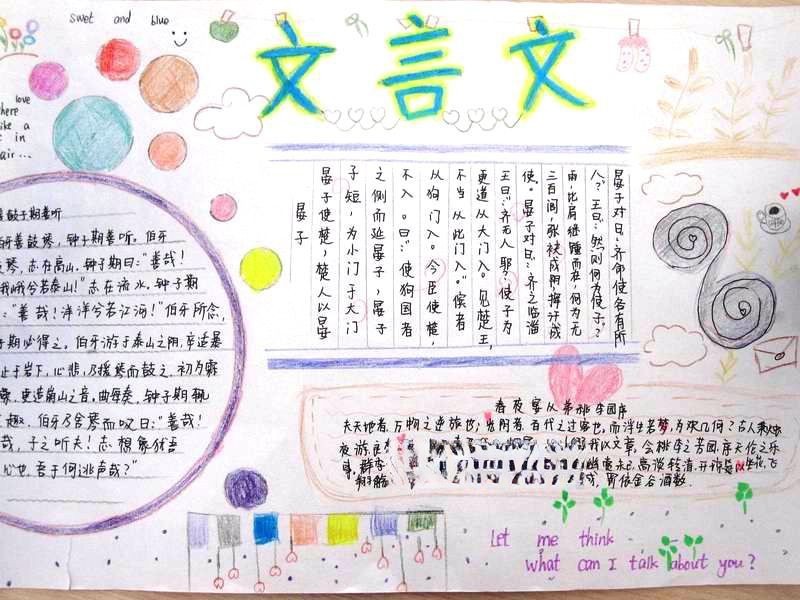 swet and blue
文言文
love
here
like a
in
air...
鼓子期善听
牙善鼓琴，钟子期善听。伯牙
琴，志在高山，钟子期曰：“善哉！
峨兮若泰山！”志在流水，钟子期
：“善哉！洋洋兮若江河！”伯牙所念，
子期必得之。伯牙游于泰山之阴，卒逢暴
止于岩下，心悲，乃援琴而鼓之。初为霖
更造崩山之音，曲每奏，钟子期辄
趣。伯牙乃舍琴而叹曰：“善哉！
哉，子之听夫！志想象犹吾
心也。吾于何逃声哉？”
晏子
晏子使楚，楚人以晏
子短，为小门于大门
之侧而延晏子，晏子
不入。曰：“使狗国者
从狗门入。今臣使楚，
不当从此门入。”傧者
更道从大门入。见楚王，
王曰：“齐无人耶，使子为
使。”晏子对曰：“齐之临淄
三百闾，张袂成阴，挥汗成
雨，比肩继踵而在，何为无
人？”王曰：“然则何为使子？”
晏子对曰：“齐命使各有所
春夜宴从弟桃李园序
夫天地者，万物之逆旅也；光阴者，百代之过客也，而浮生若梦，为欢几何？古人秉烛
夜游，良 我以文章，会桃李之芳园，序天伦之乐
事，群季 幽赏未已，高谈转清，开琼筵以坐花，飞
羽觞 成，罚依金谷酒数
Let me think
what can I talk about you?